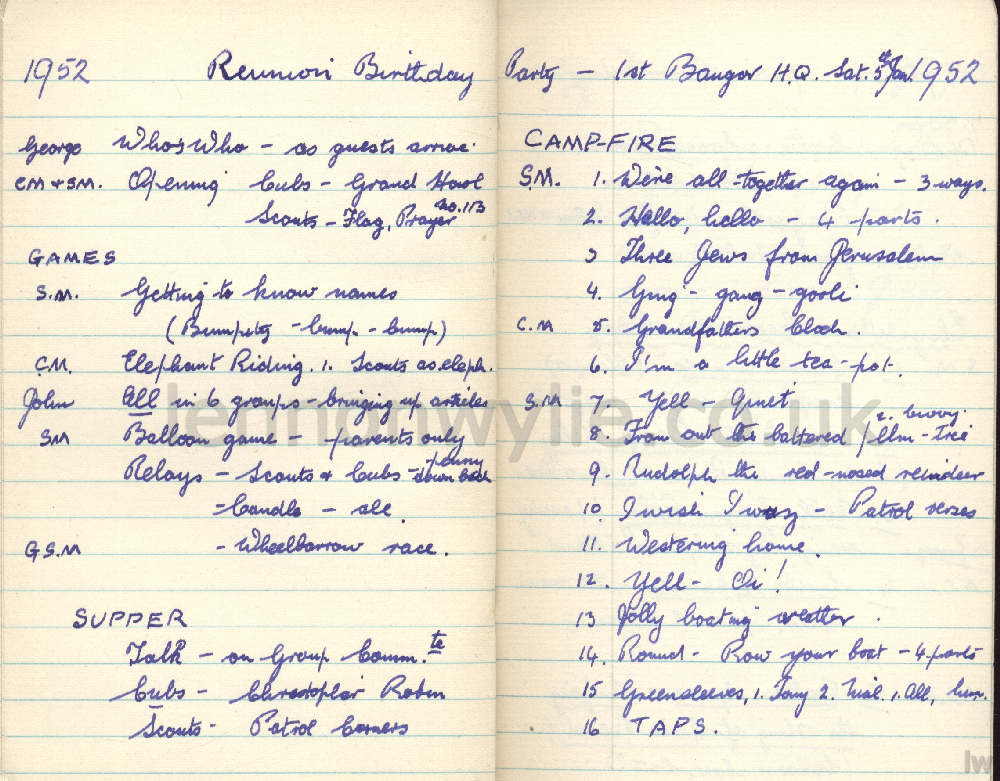 1952 Reunion Birthday Party - 1st Bangor H.Q. Sat. 5th Jan. 1952
George Who's Who - as guests arrive.
CM & SM. Opening Cubs - Grand Howl
Scouts - Flag, Prayer No. 113
GAMES
S.M. Getting to know names
(Bumpity - bump - bump)
C.M. Elephant Riding. 1. Scouts as eleph.
John All in 6 groups - bringing up articles
SM Balloon game - parents only
Relays - Scouts & Cubs - penny down back
- Candle - all.
G.S.M - Wheelbarrow race.
SUPPER
Talk - on Group Comm.te
Cubs - Christopher Robin
Scouts - Patrol Corners
CAMP-FIRE
S.M. 1. We're all-together again - 3 ways.
2. Hello, hello - 4 parts.
3 Three Jews from Jerusalem
4. Ging - gang - gooli
C.M 5. Grandfathers Clock.
6. I'm a little tea-pot.
S.M 7. Yell - Quiet
8. From out the battered Elm-Tree
9. Rudolph the red-nosed reindeer
10. I wish I was - Patrol verses
11. Westering home.
12. Yell - Oi!
13 Jolly boating weather.
14. Round - Row your boat - 4 parts
15 Greensleeves, 1. Tony 2. 1. All, hum.
16 TAPS.
lennonwylie.co.uk
lw